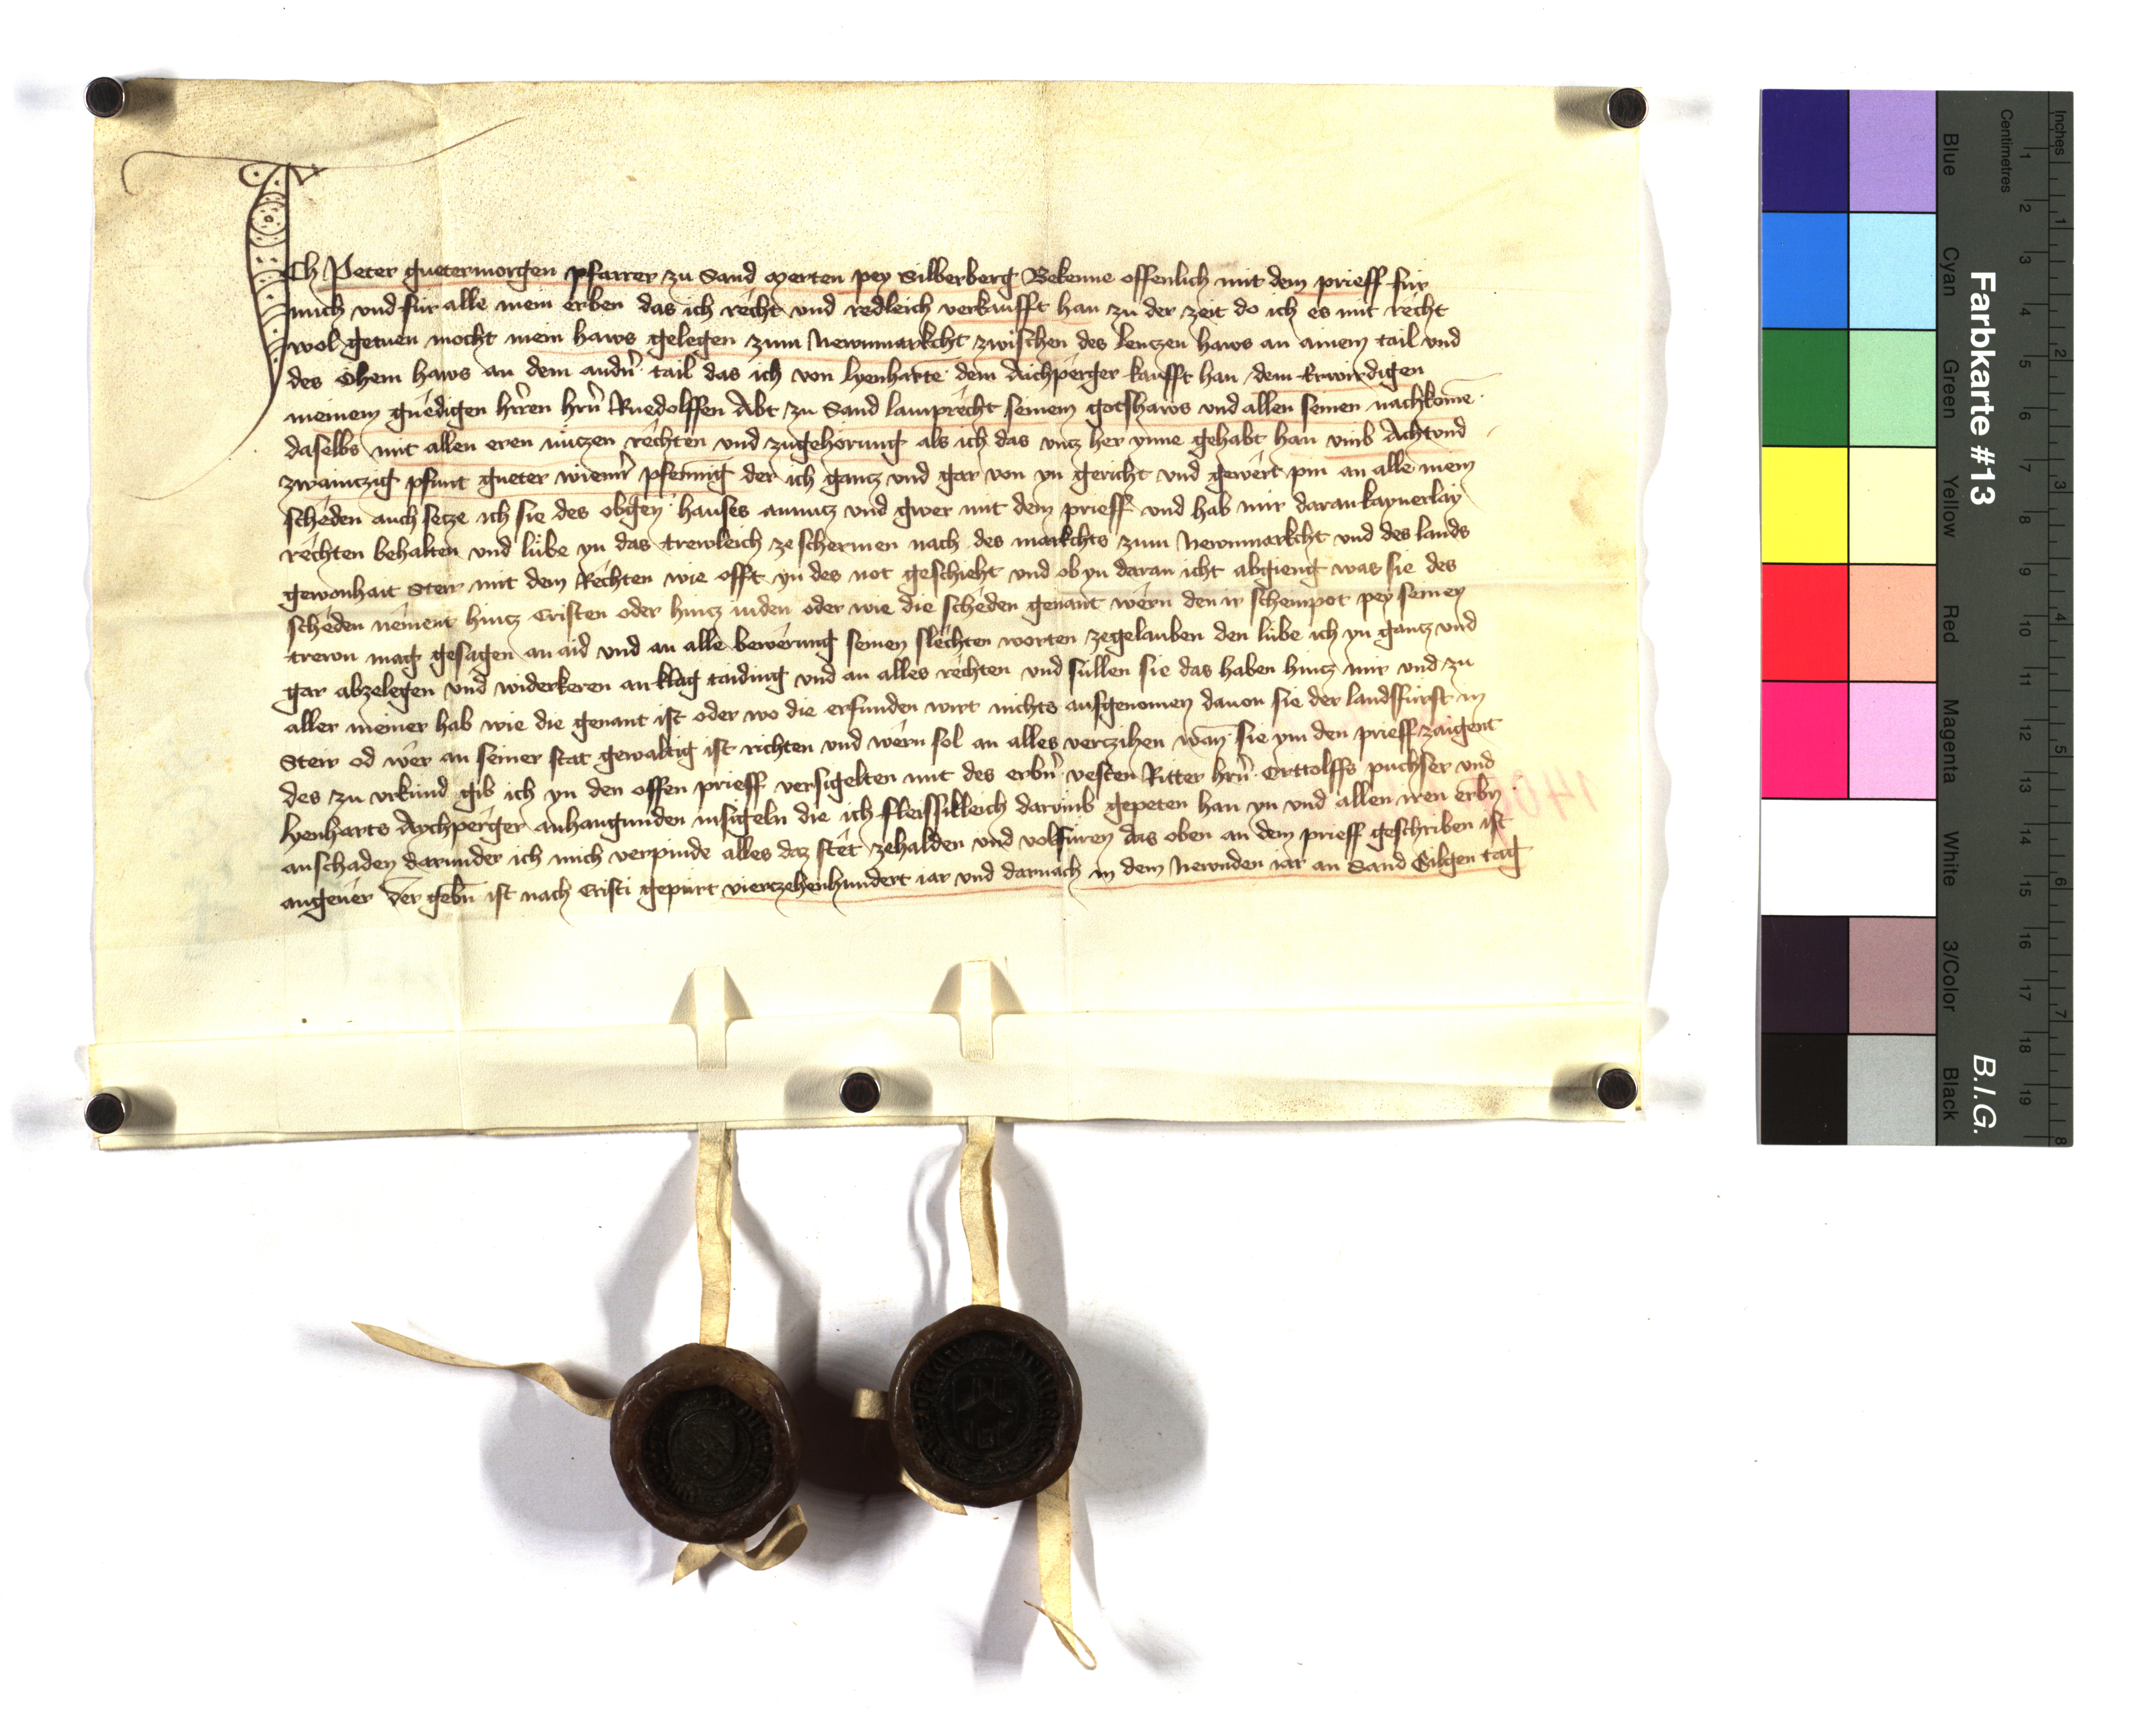 Ich Peter guetermorgen pfarrer zu Sand Merten pey Silberberg Bekenne offenlich mit dem prieff für
mich vnd für alle mein erben das ich recht vnd redleich verkaufft han zu der zeit do ich es mit recht
wol getuen mocht mein haws gelegen zum Newnmarkcht zwischen des lenczen haws an ainem tail vnd
des Öhem haws an dem andn̄ tail das ich von lyenharte dem Aichperger kaufft han dem Erwirdigen
meinem gnedigen hrren hrn̄ Ruedolffen Abt zu Sand lamprecht seinem gotshaws vnd allen seinen nachkome̅
daselbs mit allen eren nüczen rechten vnd zugehörung als ich das vncz her ynne gehabt han vmb Achtvnd
zwainczig pfunt gueter wienn̄ pfennig der ich gancz vnd gar von yn gericht vnd gewert pin an alle mein
scheden auch secze ich sie des obgen̄ hauses an nucz vnd gwer mit dem prieff vnd hab mir daran kaynerlay
rechten behalten vnd lübe yn das trewleich ze schermen nach des markchts zum Newnmarkcht vnd des lands
gewonhait Steir mit dem Rechten wie offt yn des not geschieht vnd ob yn daran icht abgieng was sie des
scheden nement hincz Cristen oder hincz iuden oder wie die scheden genant wern den ir schempot pey seinen
trewn mag gesagen an aid vnd an alle bewerung seinen slechten worten zegelauben den lübe ich yn gancz vnd
gar abzelegen vnd widerkeren an klag taiding vnd an alles rechten vnd süllen sie das haben hincz mir vnd zu
aller meiner hab wie die genant ist oder wo die erfunden wirt nichts ausgenomen dauon sie der landsfürst in
Steir od wer an seiner stat gewaltig ist richten vnd wern sol an alles verczihen wan̄ sie ym den prieff zaigent
des zu vrkund gib ich yn den offen prieff versigelten mit des erbn̄ vesten Ritter hrn̄ Orttolffs puchser vnd
lyenharts Aychperger anhangunden insigeln die ich fleissikleich darumb gepeten han yn vnd allen iren erbn̄
anschaden darunder ich mich verpinde alles daz stet zehalden vnd volfüren das oben an dem prieff geschriben ist
angeuer Der gebn̄ ist nach Cristi gepurt vierczehenhundert iar vnd darnach in dem Newnden iar an Sand Gilgen tag
Farbkarte #13
B.I.G.
Inches
1 2 3 4 5 6 7 8
Centimetres
1 2 3 4 5 6 7 8 9 10 11 12 13 14 15 16 17 18 19
Blue
Cyan
Green
Yellow
Red
Magenta
White
3/Color
Black